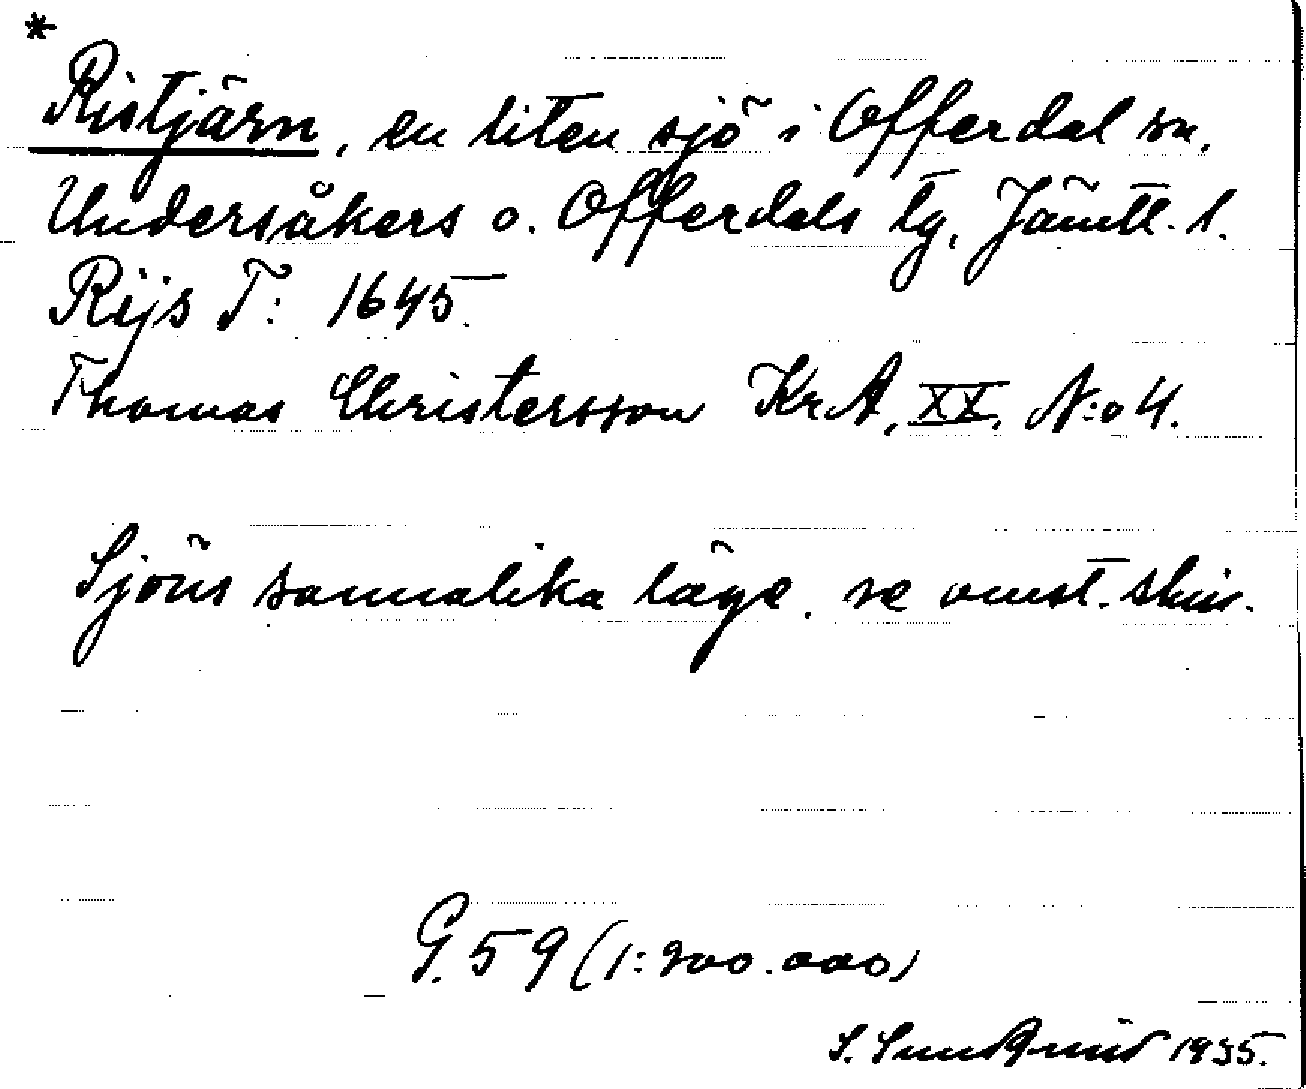 *
Ristjärn, en liten sjö i Offerdal sn.
Undersåkers o. Offerdals tg, Jämtl. l.
Rijs T: 1645.
Thomas Christersson Kr A, XX, N:o 4.
Sjöns sannolika läge, se omst. skiss.
G. 59 (1:200.000)
S. Sundqvist 1935.